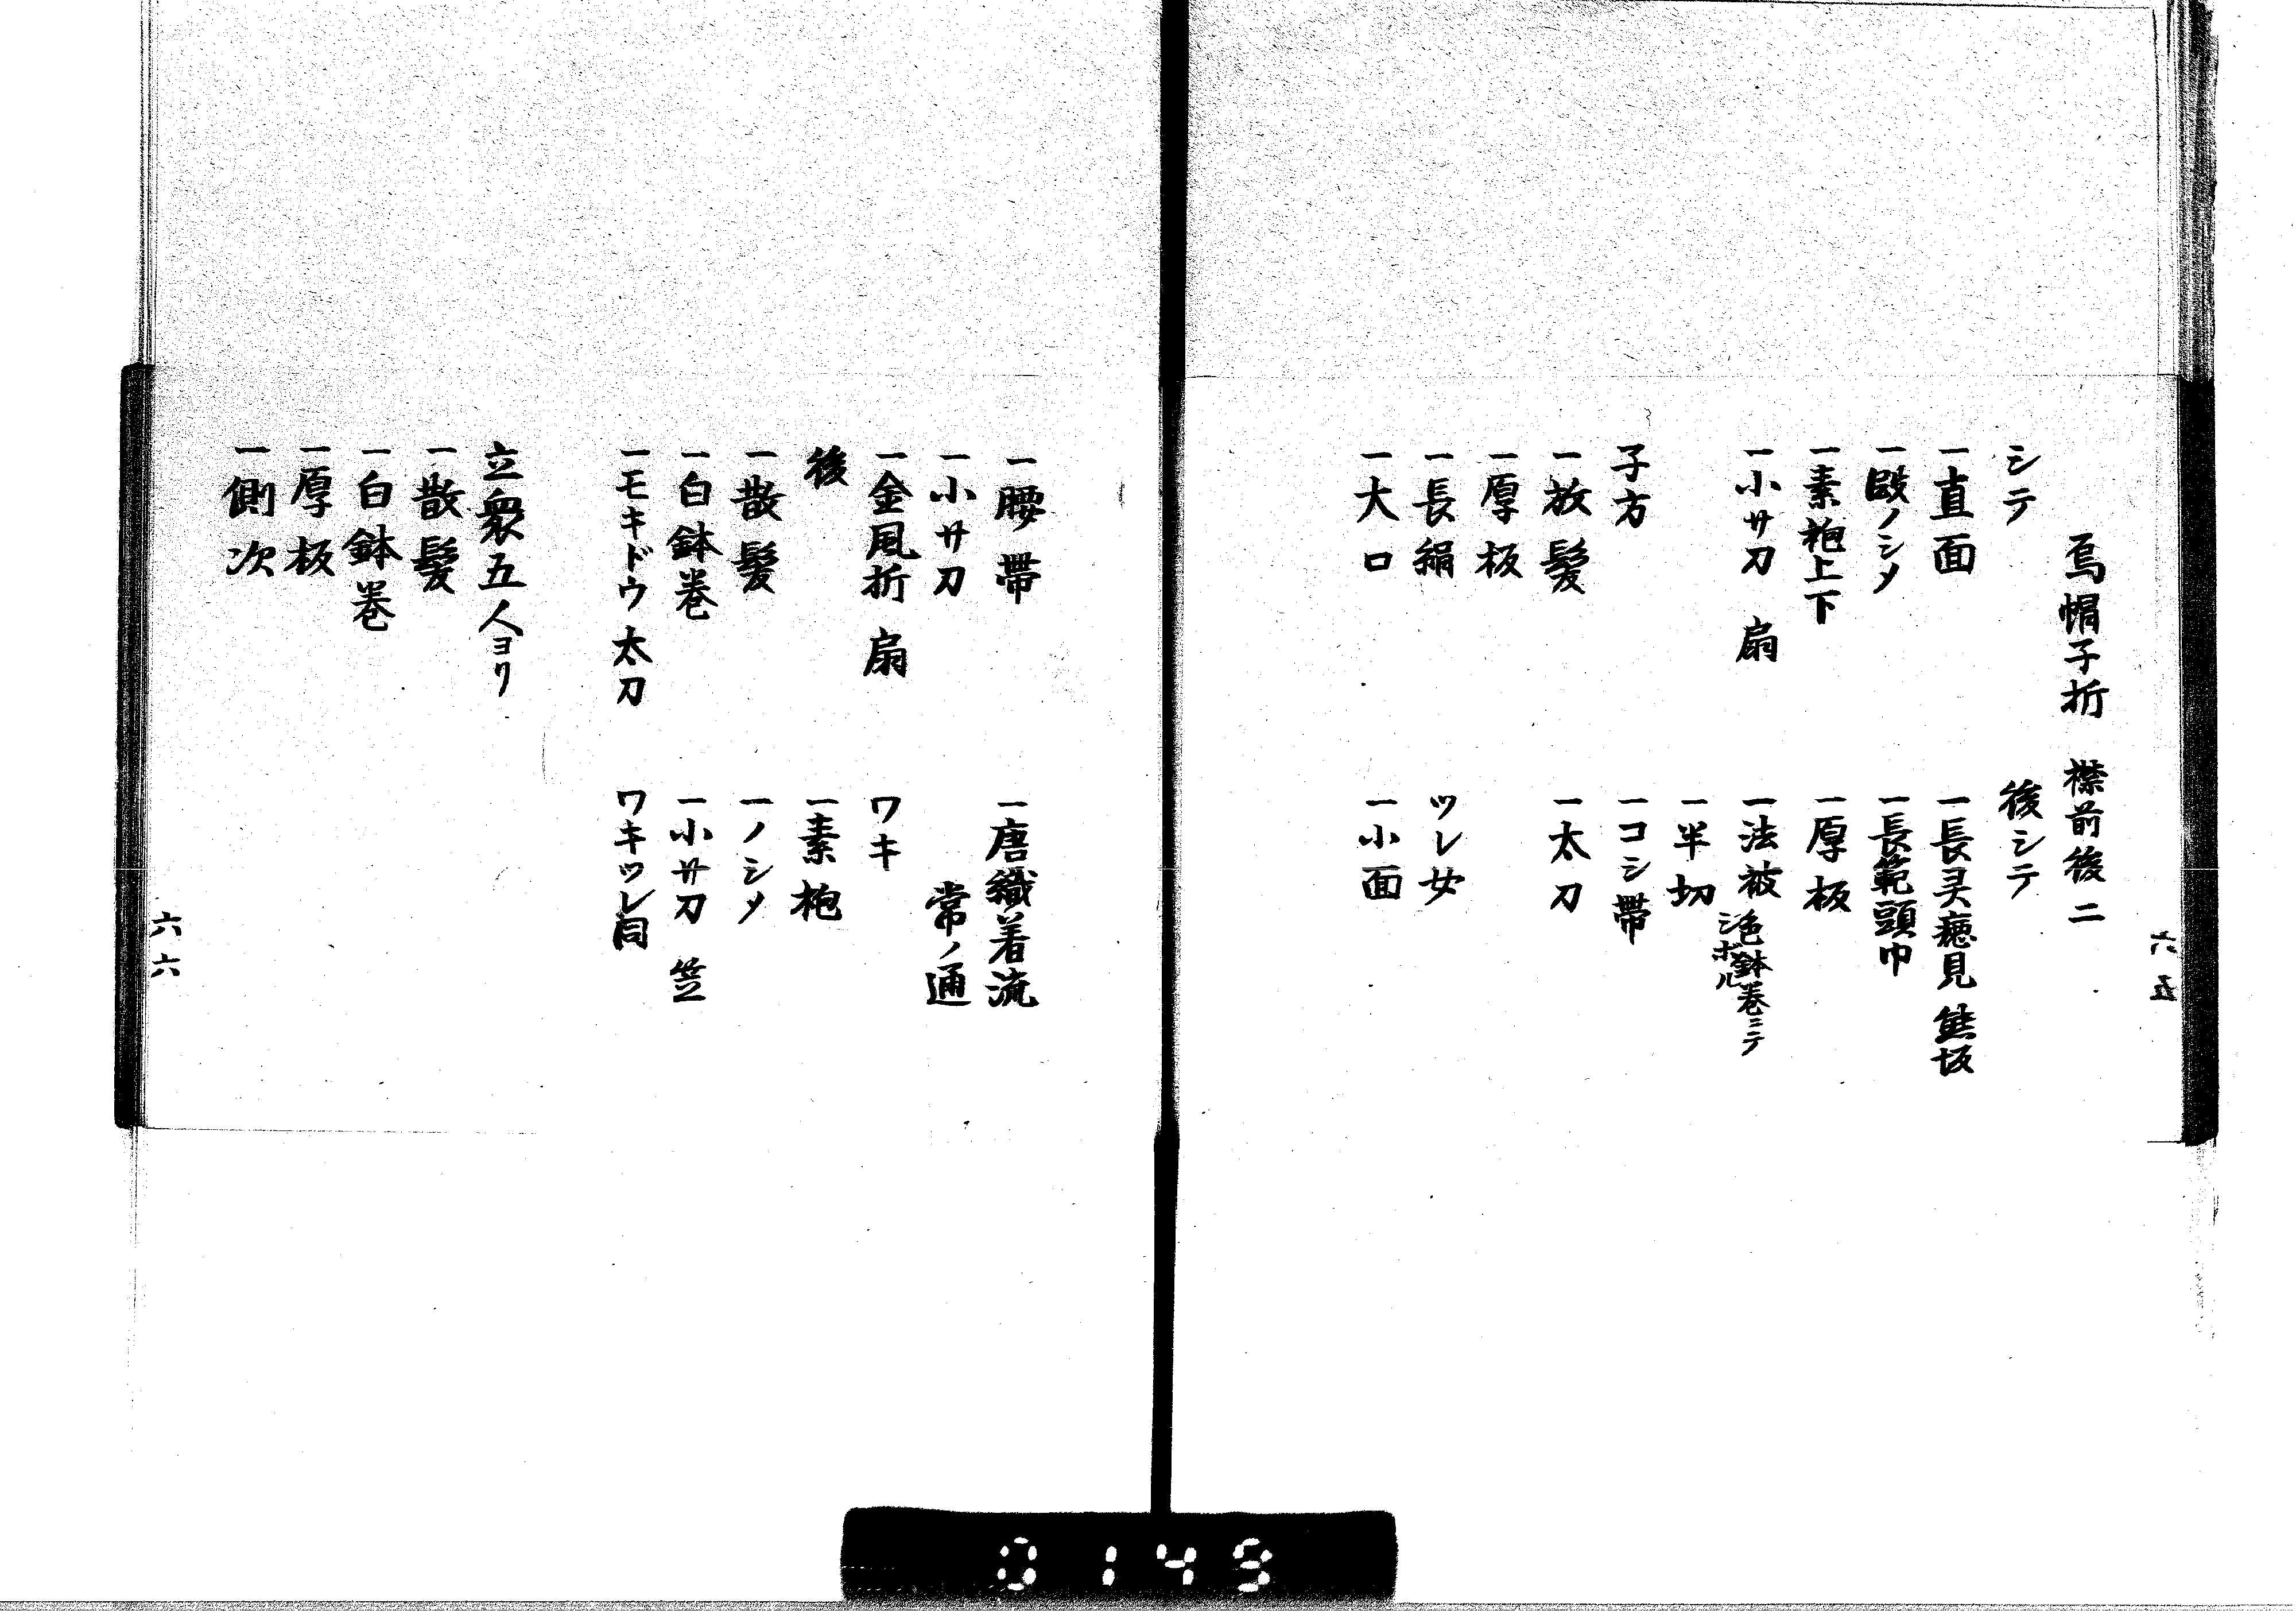 六五
烏帽子折 襟前後二
シテ
一直面
一段ノシメ
一素袍上下
一小サ刀 扇
子方
一放髪
一厚板
一長絹
一大口
後シテ
一長灵癋見 熊坂
一長範頭巾
一厚板
一法被 色鉢巻ニテ
シボル
一半切
一コシ帯
一太刀
ツレ女
一小面
一腰帯
一小サ刀
一金風折 扇
後
一散髪
一白鉢巻
一モキドウ 太刀
立衆五人ヨリ
一散髪
一白鉢巻
一厚板
一側次
一唐織着流
常ノ通
ワキ
一素袍
一ノシメ
一小サ刀 笠
ワキツレ同
六六
0149